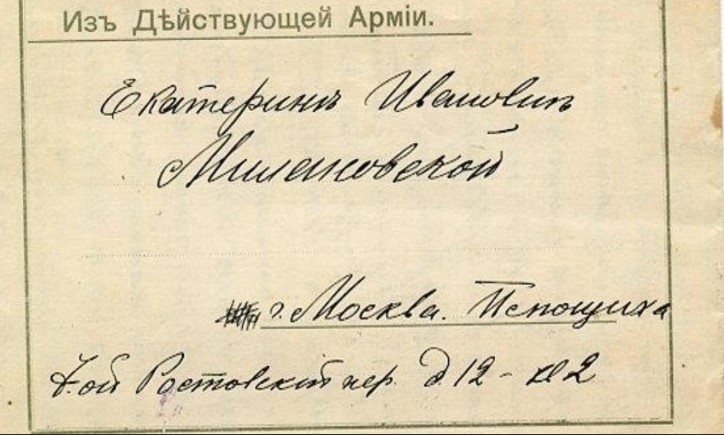 Изъ Дѣйствующей Арміи.
Екатеринѣ Ивановнѣ
Милановской
г. Москва. Плющиха
7-ой Ростовскій пер. д. 12 - кв 2